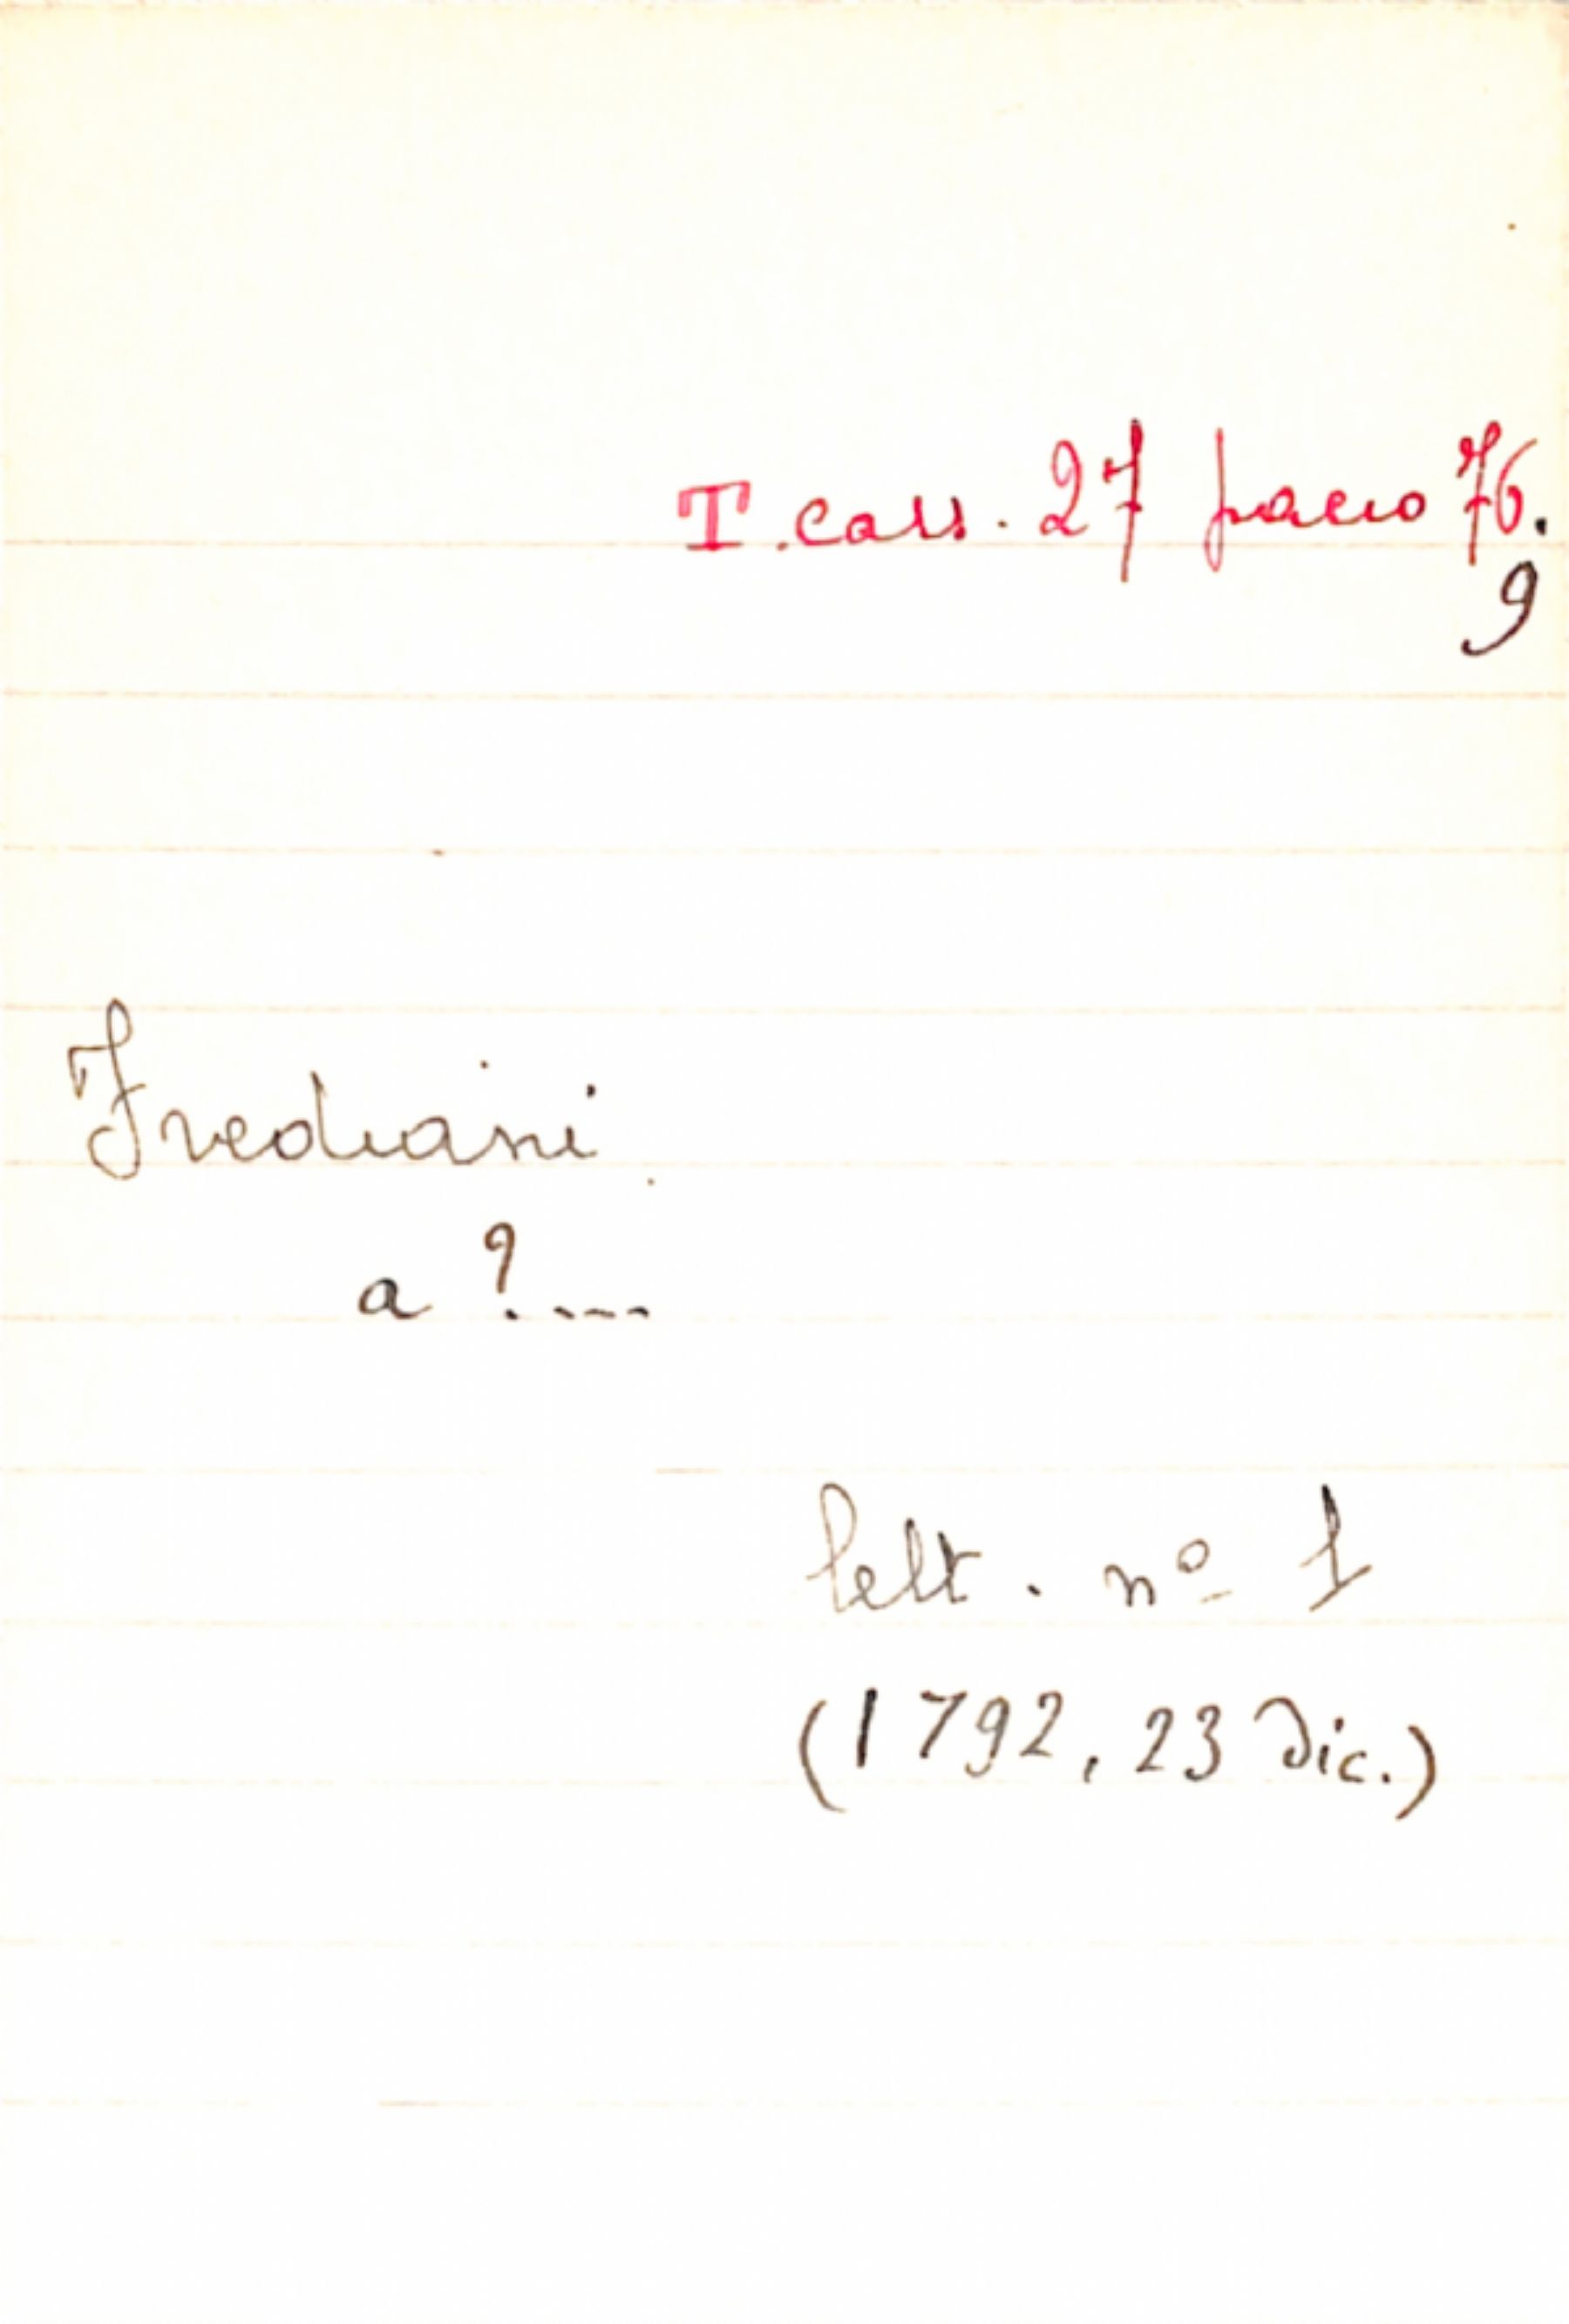 T. cass. 27 pacco 76.
9
Frediani
a ?....
lett. nº 1
(1792, 23 dic.)